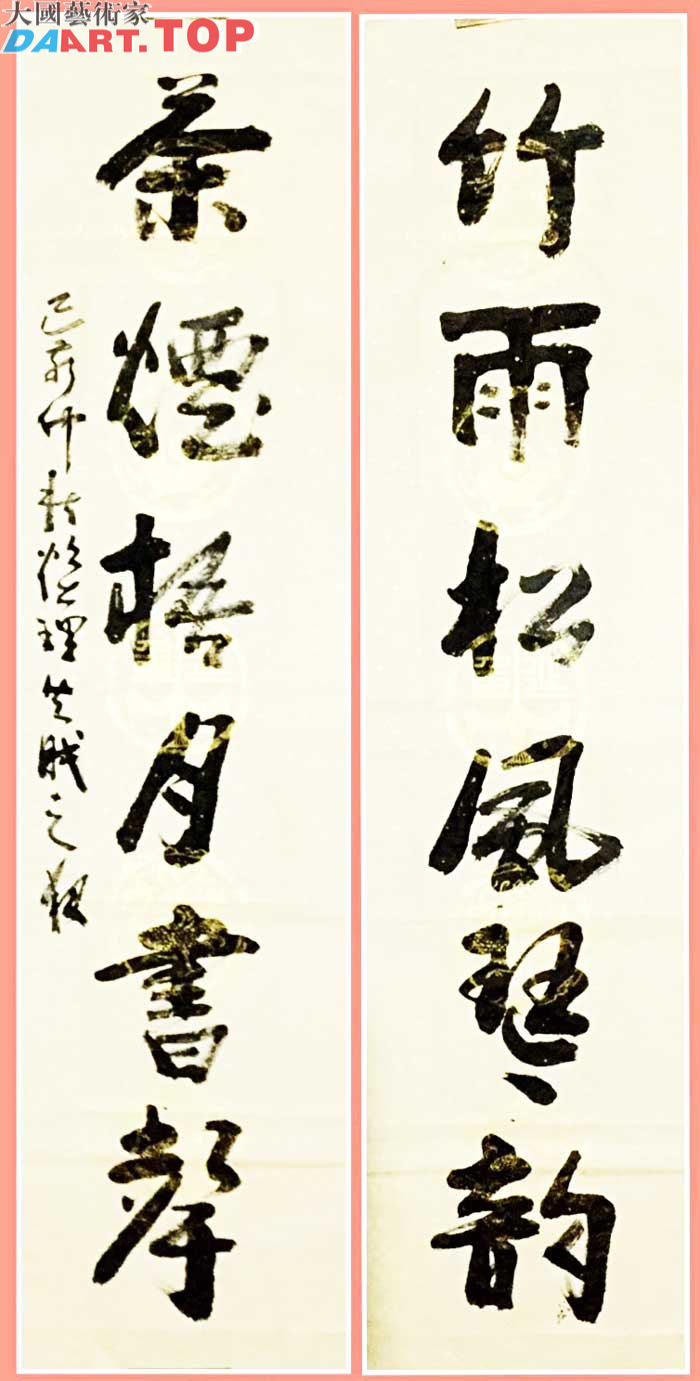 大國藝術家
DAART.TOP
竹雨松風琴韵
茶煙梧月書聲
己亥仲秋